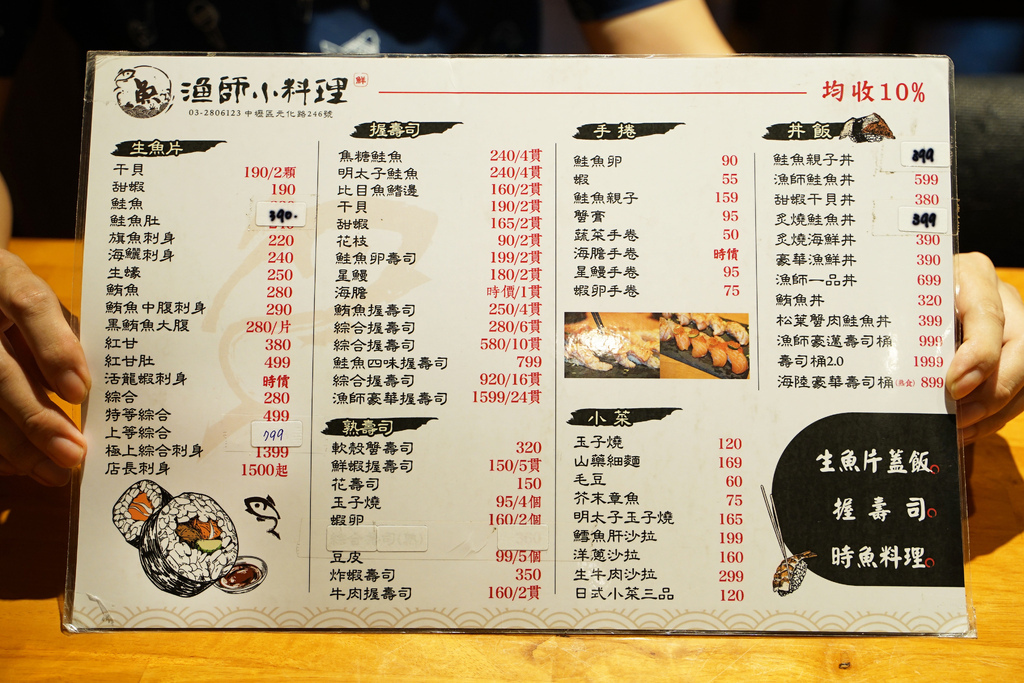 魚 漁師小料理 鮮
03-2806123 中壢區元化路246號
均收10%
生魚片
干貝 190/2顆
甜蝦 190
鮭魚
鮭魚肚 390.
旗魚刺身 220
海鱺刺身 240
生蠔 250
鮪魚 280
鮪魚中腹刺身 290
黑鮪魚大腹 280/片
紅甘 380
紅甘肚 499
活龍蝦刺身 時價
綜合 280
特等綜合 499
上等綜合 799
極上綜合刺身 1399
店長刺身 1500起
握壽司
焦糖鮭魚 240/4貫
明太子鮭魚 240/4貫
比目魚鰭邊 160/2貫
干貝 190/2貫
甜蝦 165/2貫
花枝 90/2貫
鮭魚卵壽司 199/2貫
星鰻 180/2貫
海膽 時價/1貫
鮪魚握壽司 250/4貫
綜合握壽司 280/6貫
綜合握壽司 580/10貫
鮭魚四味握壽司 799
綜合握壽司 920/16貫
漁師豪華握壽司 1599/24貫
熟壽司
軟殼蟹壽司 320
鮮蝦握壽司 150/5貫
花壽司 150
玉子燒 95/4個
蝦卵 160/2個
豆皮 99/5個
炸蝦壽司 350
牛肉握壽司 160/2貫
手捲
鮭魚卵 90
蝦 55
鮭魚親子 159
蟹膏 95
蔬菜手卷 50
海膽手卷 時價
星鰻手卷 95
蝦卵手卷 75
小菜
玉子燒 120
山藥細麵 169
毛豆 60
芥末章魚 75
明太子玉子燒 165
鱈魚肝沙拉 199
洋蔥沙拉 160
生牛肉沙拉 299
日式小菜三品 120
丼飯
鮭魚親子丼 399
漁師鮭魚丼 599
甜蝦干貝丼 380
炙燒鮭魚丼 399
炙燒海鮮丼 390
豪華漁鮮丼 390
漁師一品丼 699
鮪魚丼 320
松葉蟹肉鮭魚丼 399
漁師豪邁壽司桶 999
壽司桶2.0 1999
海陸豪華壽司桶(熟食) 899
生魚片蓋飯。
握壽司。
時魚料理。